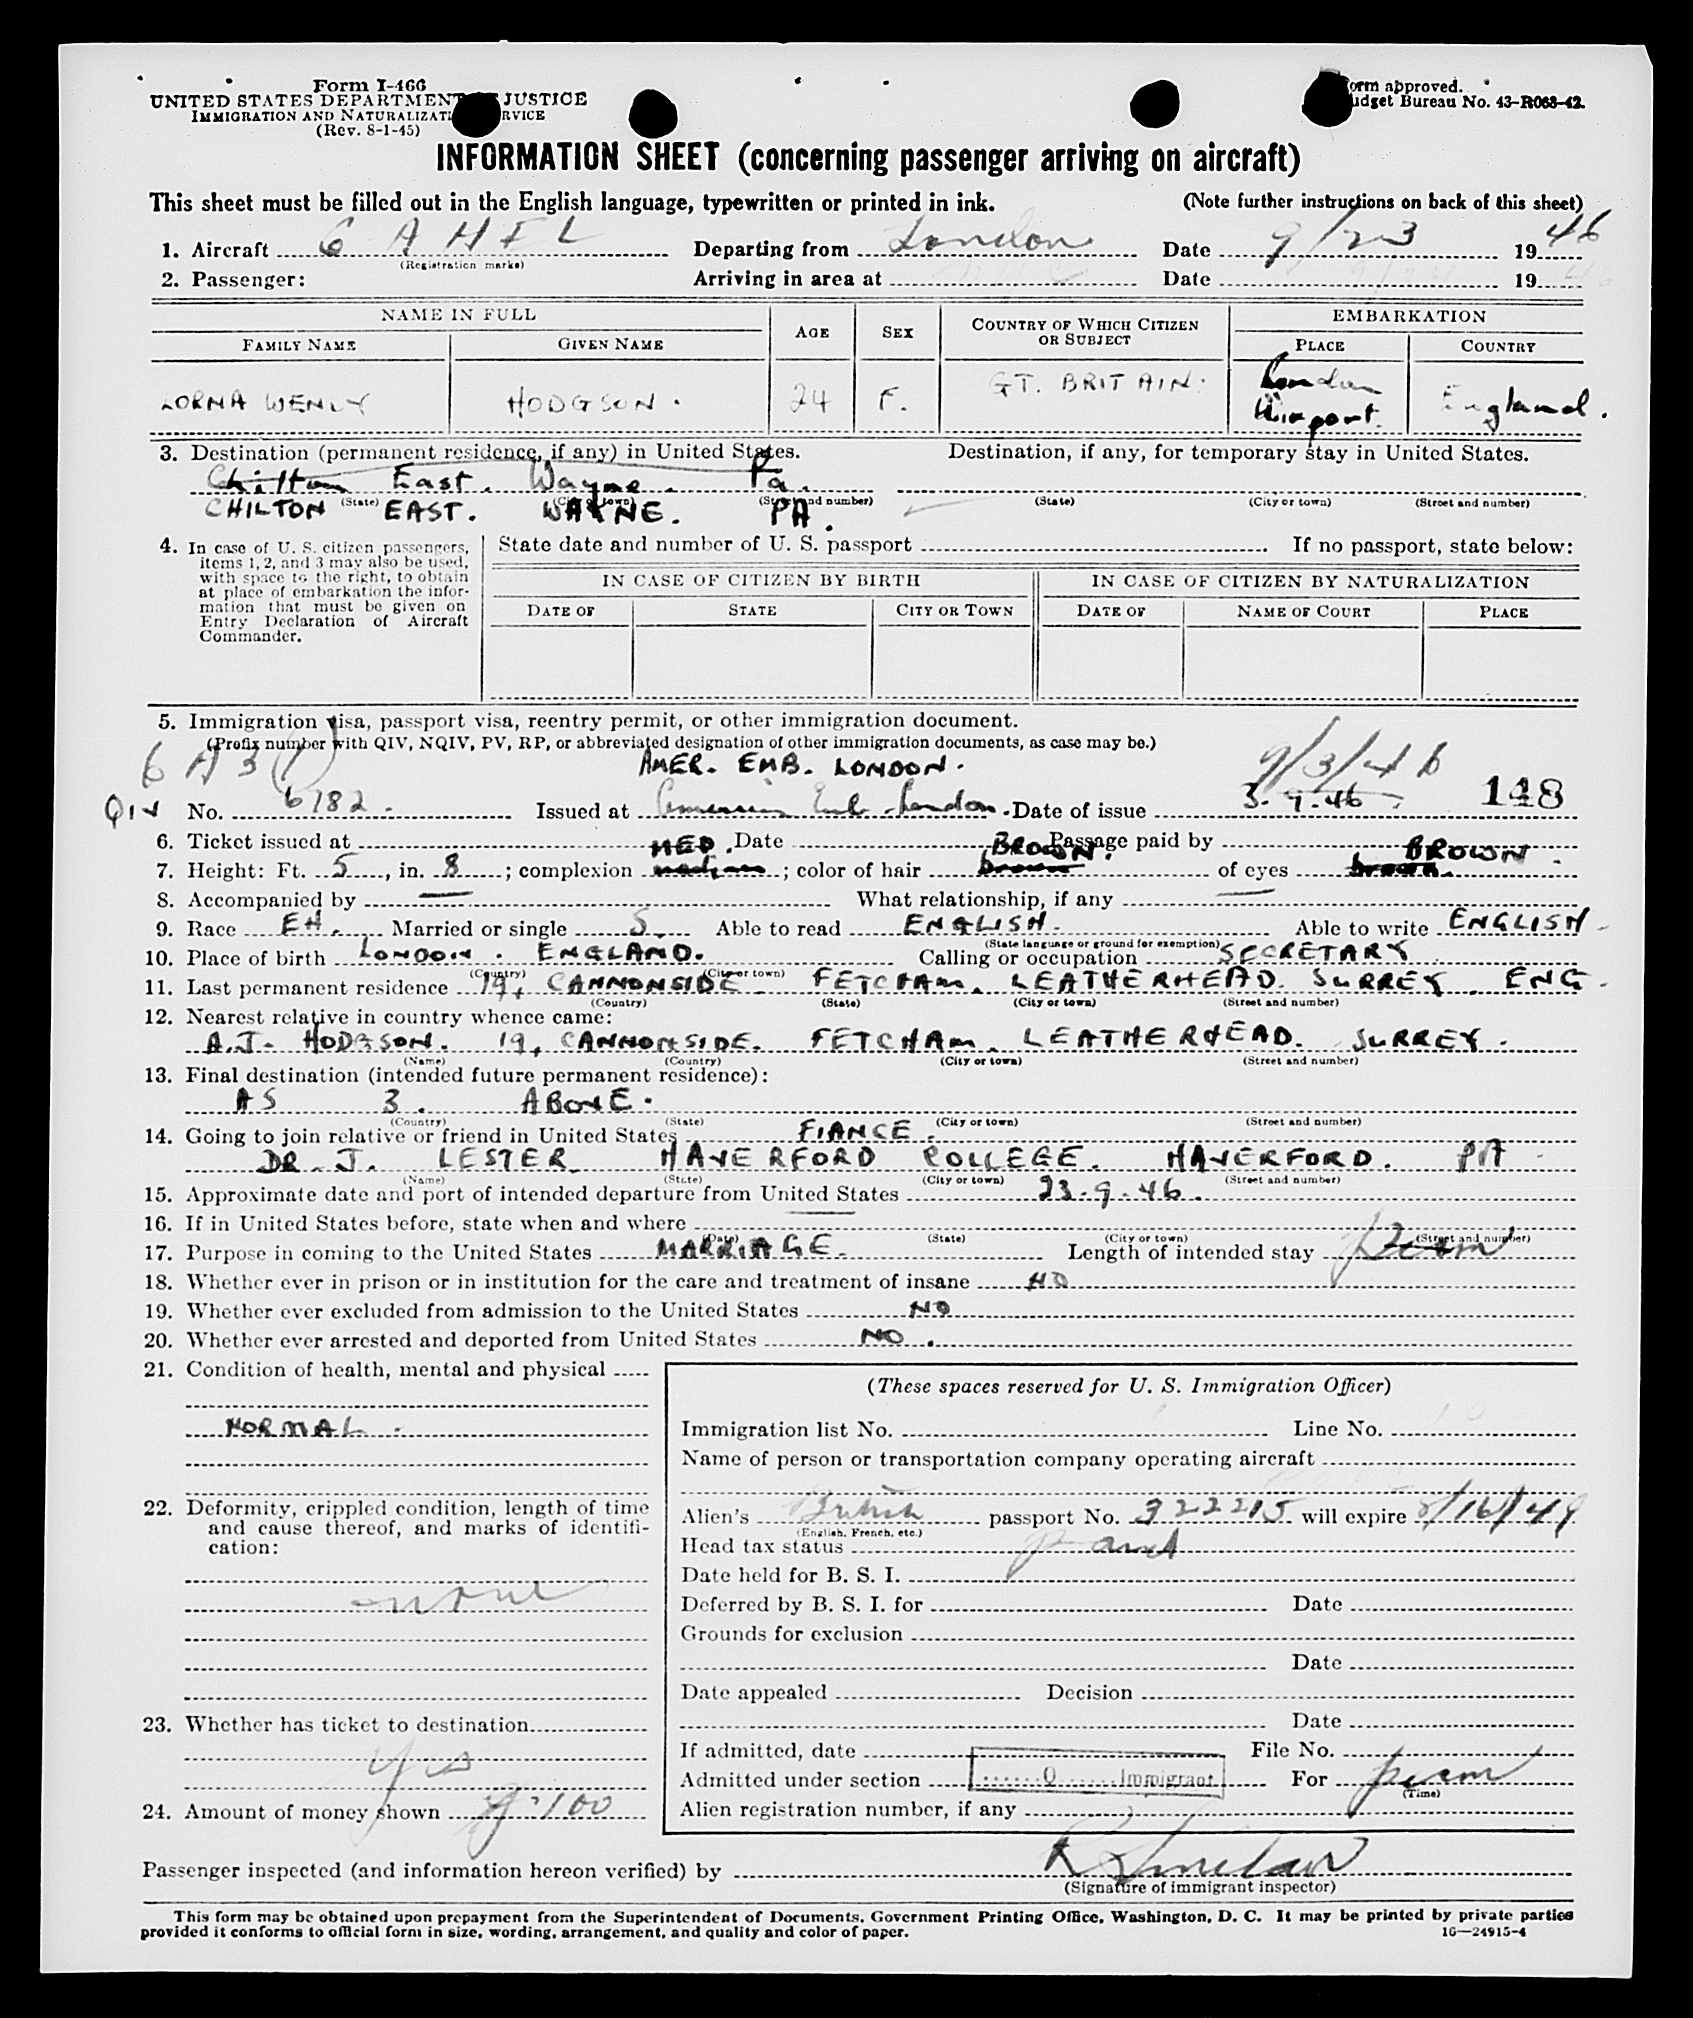 Form I-466
UNITED STATES DEPARTMENT JUSTICE
IMMIGRATION AND NATURALIZATI RVICE
(Rev. 8-1-45)
orm approved.
udget Bureau No. 43-R068-42.
INFORMATION SHEET (concerning passenger arriving on aircraft)
This sheet must be filled out in the English language, typewritten or printed in ink. (Note further instructions on back of this sheet)
1. Aircraft G A H E L Departing from London Date 9/23 1946
(Registration marks)
2. Passenger: Arriving in area at Date 19
NAME IN FULL AGE SEX COUNTRY OF WHICH CITIZEN OR SUBJECT EMBARKATION
FAMILY NAME GIVEN NAME PLACE COUNTRY
LORNA WENDY HODGSON. 24 F. GT. BRITAIN. London Airport. England.
3. Destination (permanent residence, if any) in United States. Destination, if any, for temporary stay in United States.
Chilton East. Wayne. Pa.
(State) (City or town) (Street and number) (State) (City or town) (Street and number)
CHILTON EAST. WAYNE. PA.
4. In case of U. S. citizen passengers,
items 1, 2, and 3 may also be used,
with space to the right, to obtain
at place of embarkation the infor-
mation that must be given on
Entry Declaration of Aircraft
Commander.
State date and number of U. S. passport If no passport, state below:
IN CASE OF CITIZEN BY BIRTH IN CASE OF CITIZEN BY NATURALIZATION
DATE OF STATE CITY OR TOWN DATE OF NAME OF COURT PLACE
5. Immigration visa, passport visa, reentry permit, or other immigration document.
(Prefix number with QIV, NQIV, PV, RP, or abbreviated designation of other immigration documents, as case may be.)
6 A 3 (1) AMER. EMB. LONDON. 9/3/46
QIV No. 6782. Issued at American Emb. London. Date of issue 3.9.46. 148
6. Ticket issued at Date Passage paid by
MED. BROWN. BROWN.
7. Height: Ft. 5, in. 8; complexion medium; color of hair brown of eyes brown.
8. Accompanied by — What relationship, if any —
9. Race EH. Married or single S. Able to read ENGLISH. Able to write ENGLISH.
(State language or ground for exemption)
10. Place of birth LONDON. ENGLAND. Calling or occupation SECRETARY
(Country) (City or town)
11. Last permanent residence 19, CANNONSIDE FETCHAM. LEATHERHEAD. SURREY. ENG.
(Country) (State) (City or town) (Street and number)
12. Nearest relative in country whence came:
A.J. HODGSON. 19, CANNONSIDE. FETCHAM. LEATHERHEAD. SURREY.
(Name) (Country) (City or town) (Street and number)
13. Final destination (intended future permanent residence):
AS 3. ABOVE.
(Country) (State) (City or town) (Street and number)
14. Going to join relative or friend in United States FIANCE.
DR. J. LESTER HAVERFORD COLLEGE. HAVERFORD. PA
(Name) (State) (City or town) (Street and number)
15. Approximate date and port of intended departure from United States 23.9.46.
16. If in United States before, state when and where —
(Date) (State) (City or town) (Street and number)
17. Purpose in coming to the United States MARRIAGE. Length of intended stay Perm
18. Whether ever in prison or in institution for the care and treatment of insane NO
19. Whether ever excluded from admission to the United States NO
20. Whether ever arrested and deported from United States NO.
21. Condition of health, mental and physical
NORMAL.
22. Deformity, crippled condition, length of time
and cause thereof, and marks of identifi-
cation:
none
23. Whether has ticket to destination
yes
24. Amount of money shown $100
(These spaces reserved for U. S. Immigration Officer)
Immigration list No. Line No.
Name of person or transportation company operating aircraft
Alien's British passport No. 322215 will expire 8/16/49
(English, French, etc.)
Head tax status paid
Date held for B. S. I.
Deferred by B. S. I. for Date
Grounds for exclusion
Date
Date appealed Decision
Date
If admitted, date File No.
Admitted under section Q Immigrant For perm
(Time)
Alien registration number, if any
Passenger inspected (and information hereon verified) by R Sinclair
(Signature of immigrant inspector)
This form may be obtained upon prepayment from the Superintendent of Documents, Government Printing Office, Washington, D. C. It may be printed by private parties
provided it conforms to official form in size, wording, arrangement, and quality and color of paper. 16—24915-4